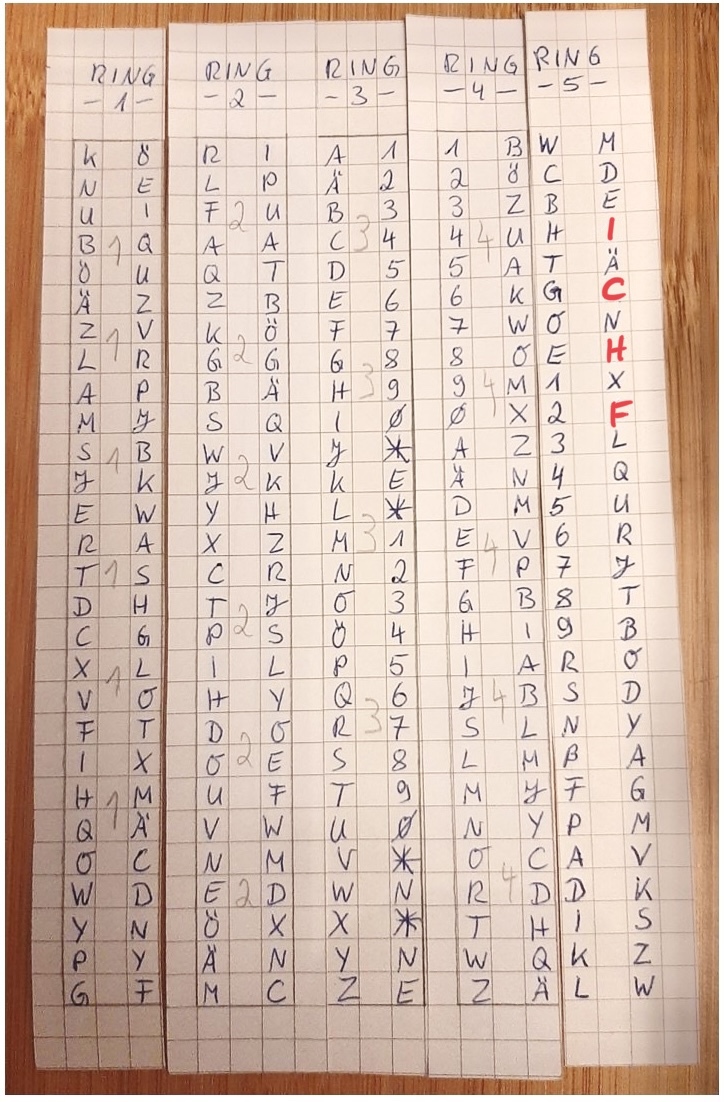 RING RING RING RING RING
-1- -2- -3- -4- -5-
K Ö R I A 1 1 B W M
N E L P Ä 2 2 Ö C D
U I F 2 U B 3 3 Z B E
B 1 Q A A C 3 4 4 4 U H I
Ö U Q T D 5 5 A T Ä
Ä Z Z B E 6 6 K G C
Z 1 V K Ö F 7 7 W O N
L R G 2 G G 8 8 O E H
A P B Ä H 3 9 9 4 M 1 X
M J S Q I Ø Ø X 2 F
S 1 B W V J * A Z 3 L
J K J 2 K K E Ä N 4 Q
E W Y H L * D M 5 U
R A X Z M 3 1 E 4 V 6 R
T 1 S C R N 2 F P 7 J
D H T J O 3 G B 8 T
C G P 2 S Ö 4 H I 9 B
X 1 L I L P 5 I A R O
V O H Y Q 6 J 4 B S D
F T D O R 3 7 S L N Y
I X O 2 E S 8 L M B A
H 1 M U F T 9 M J F G
Q Ä V W U Ø N Y P M
O C N M V * O C A V
W D E 2 D W N R 4 D D K
Y N Ö X X * T H I S
P Y Ä N Y N W Q K Z
G F M C Z E Z Ä L W